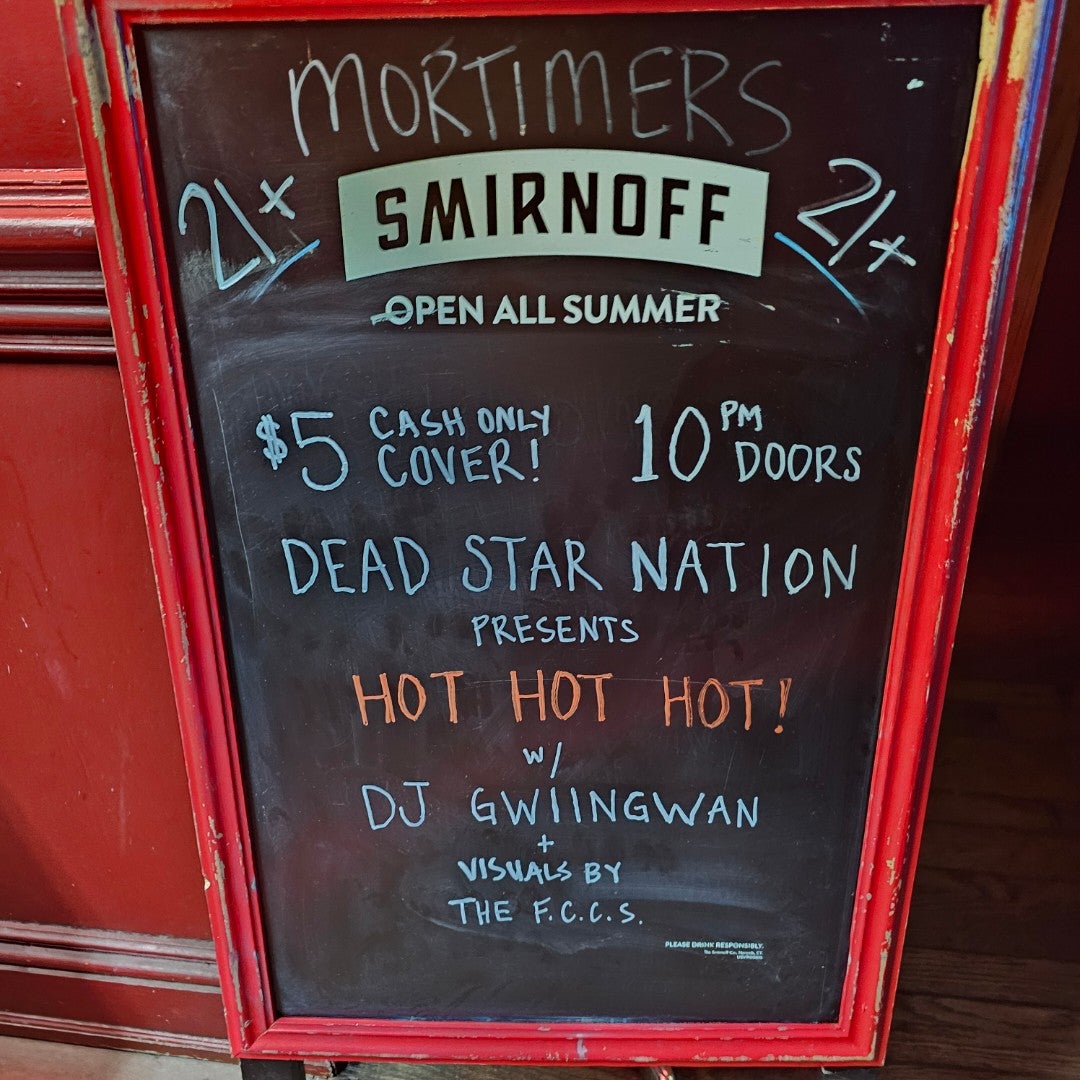 MORTIMERS
21+ SMIRNOFF 21+
OPEN ALL SUMMER
$5 CASH ONLY COVER! 10 PM DOORS
DEAD STAR NATION
PRESENTS
HOT HOT HOT!
w/
DJ GWIINGWAN
+
VISUALS BY
THE F.C.C.S.
PLEASE DRINK RESPONSIBLY.